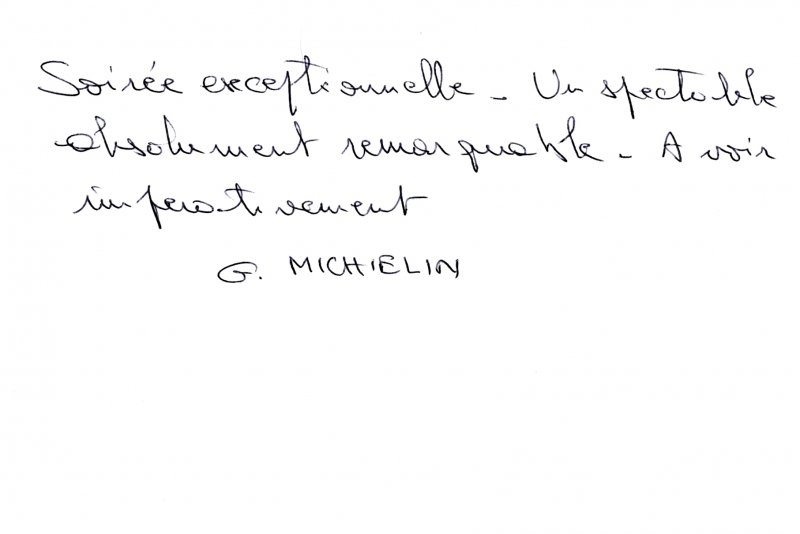 Soirée exceptionnelle - Un spectable
absolument remarquable - A voir
imperativement
G. MICHIELIN